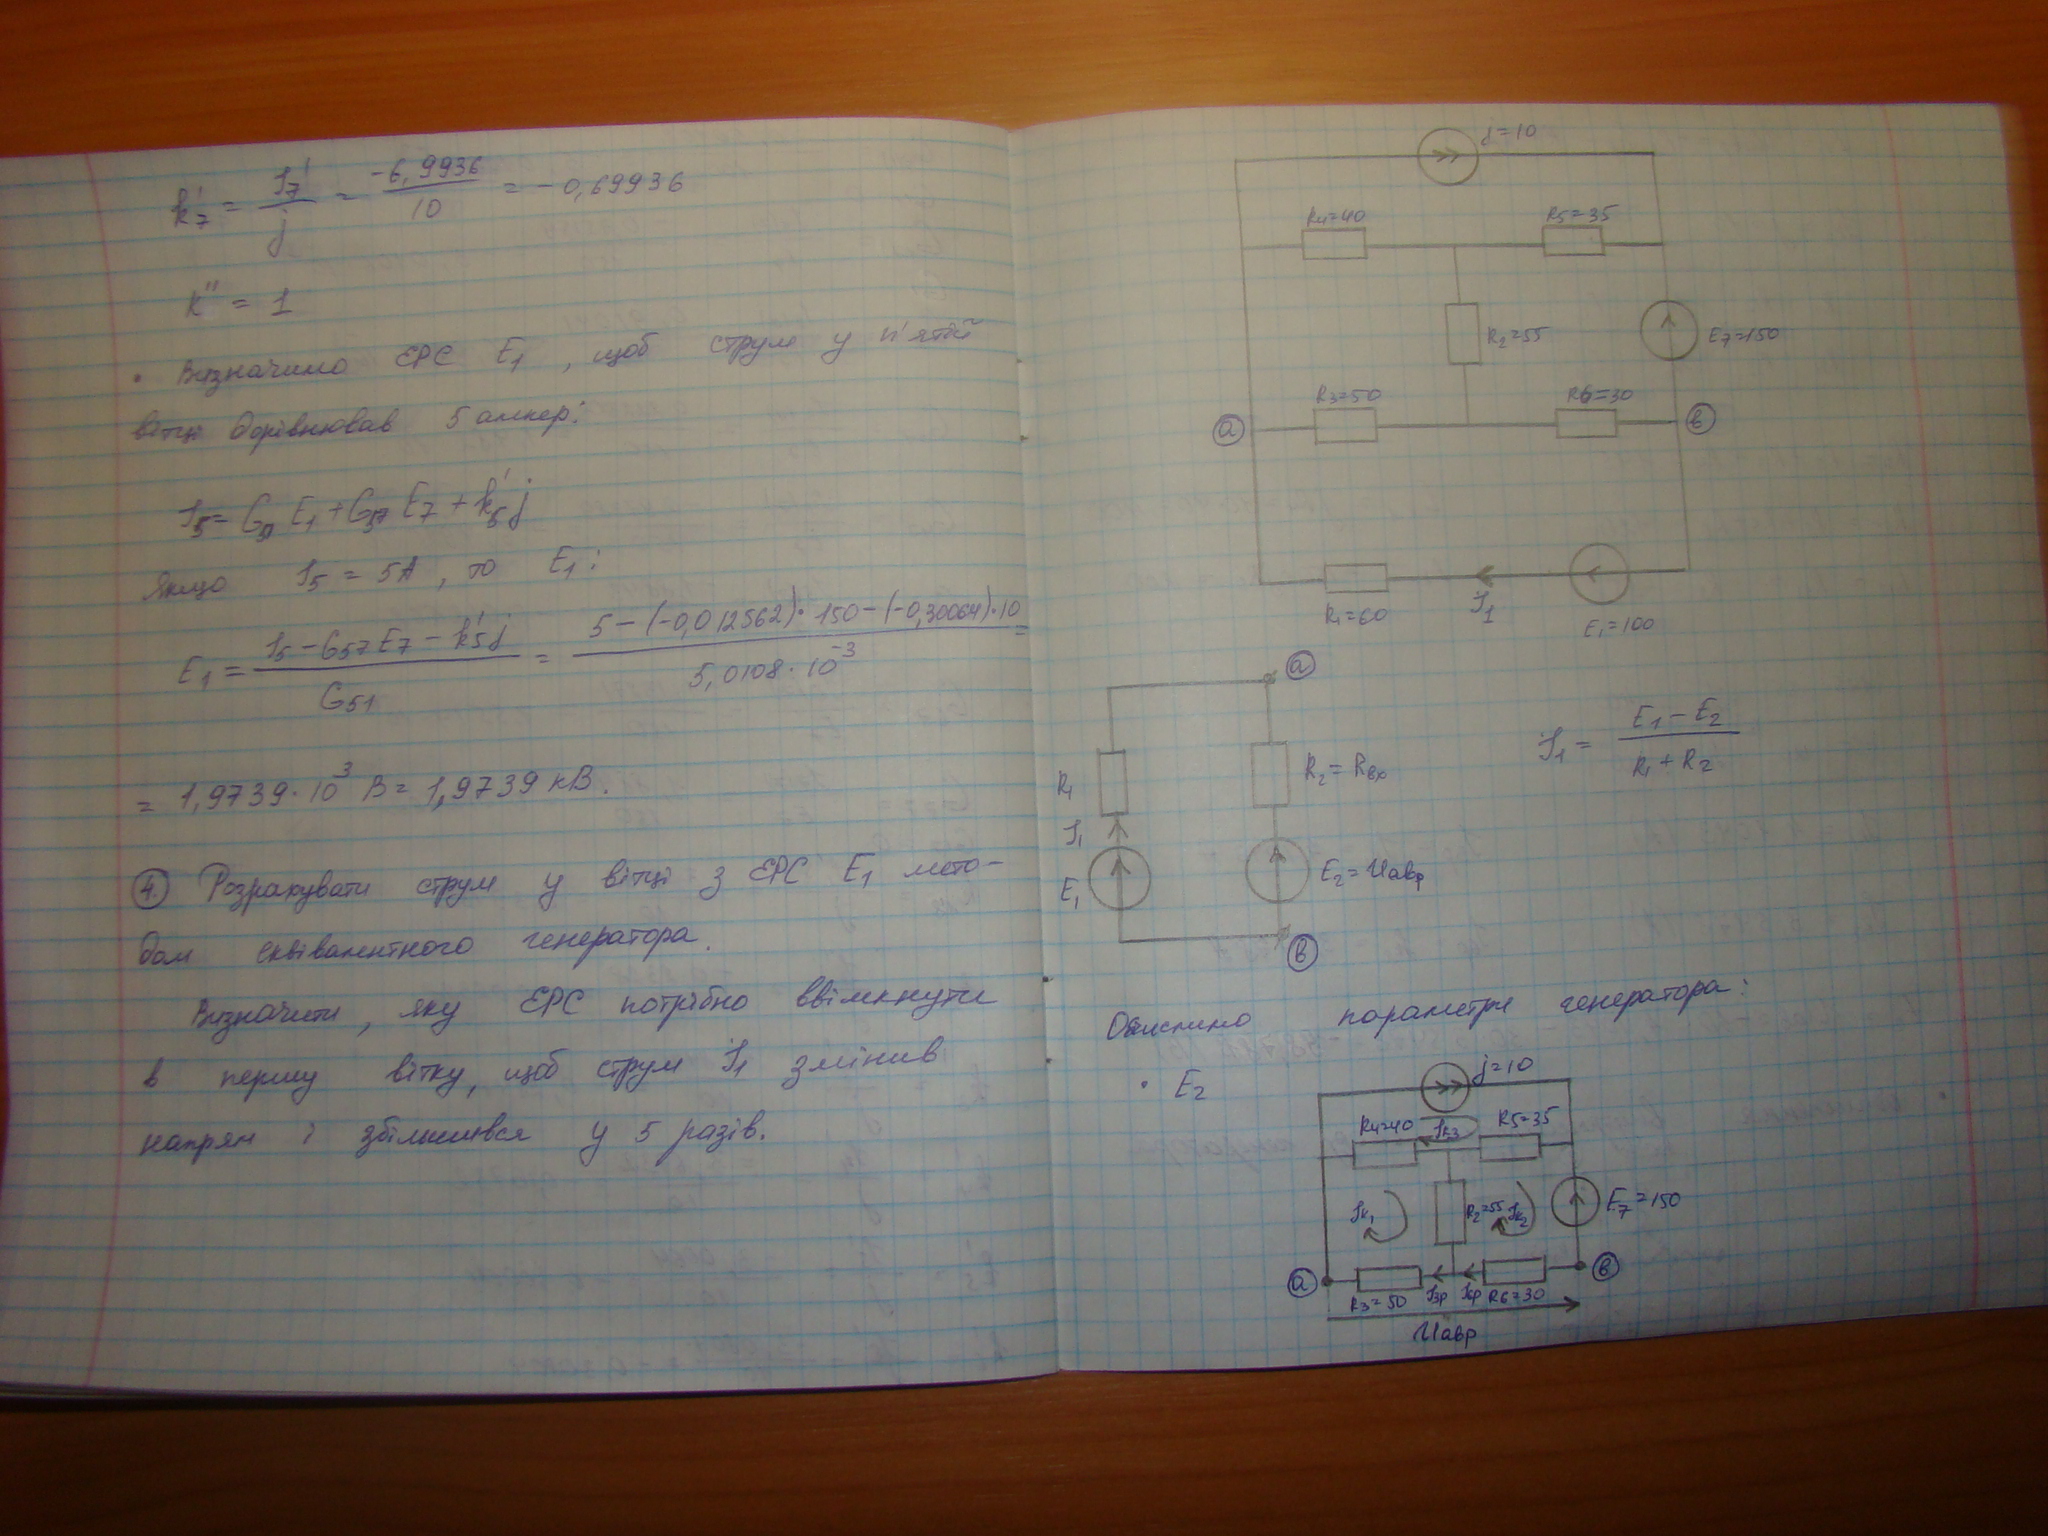 k'₇ = I'₇ / j = -6,9936 / 10 = -0,69936
k'' = 1
• Визначимо ЕРС E₁, щоб струм у п'ятій
вітці дорівнював 5 ампер:
I₅ = G₅₁ E₁ + G₅₇ E₇ + k'₅ j
Якщо I₅ = 5А, то E₁:
E₁ = (I₅ - G₅₇E₇ - k'₅j) / G₅₁ = (5 - (-0,012562)·150 - (-0,30064)·10) / (5,0108·10⁻³) =
= 1,9739·10³ В = 1,9739 кВ.
4. Розрахувати струм у вітці з ЕРС E₁ мето-
дом еквівалентного генератора.
Визначити, яку ЕРС потрібно ввімкнути
в першу вітку, щоб струм I₁ змінив
напрям і збільшився у 5 разів.
j=10
R₄=40
R₅=35
R₂=55
E₇=150
R₃=50
R₆=30
a
в
R₁=60
I₁
E₁=100
a
R₁
I₁
E₁
R₂ = Rвх
E₂ = Uавр
в
I₁ = (E₁ - E₂) / (R₁ + R₂)
Обчислимо параметри генератора:
• E₂
j=10
R₄=40
Iк₃
R₅=35
Iк₁
R₂=55
Iк₂
E₇=150
a
в
R₃=50
I₃р
I₆р
R₆=30
Uавр